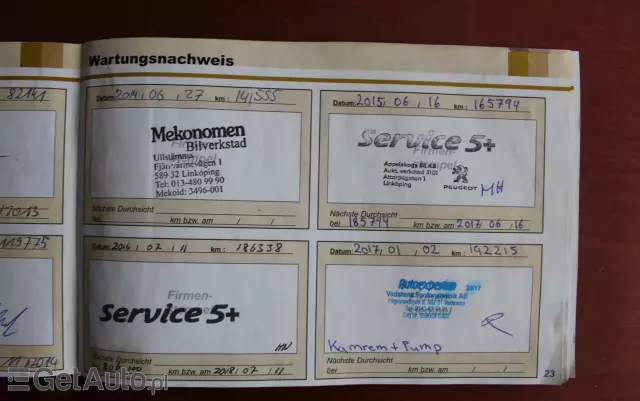 Wartungsnachweis
82141
Datum: 2014, 06, 27 km: 141,555
Mekonomen
Bilverkstad
Ullstämma
Fjärvärmevägen 1
589 32 Linköping
Tel: 013-480 99 90
Mekoid: 3496-001
Nächste Durchsicht
bei km bzw. am / /
Datum: 2015, 06, 16 km: 165794
Service 5+
Firmen-
Appelskogs BIL AB
Aukt. verkstad 3101
Attorpsgatan 1
Linköping
PEUGEOT
MH
Nächste Durchsicht
bei 185794 km bzw. am 2017, 06, 16
119775
Datum: 2016, 07, 11 km: 186338
Firmen-
Service 5+
Nächste Durchsicht
km bzw. am 2018, 07, 11
Datum: 2017, 01, 02 km: 192215
Autoexperten 2017
Kamrem + Pump
Nächste Durchsicht
bei km bzw. am / /
23
GetAuto.pl